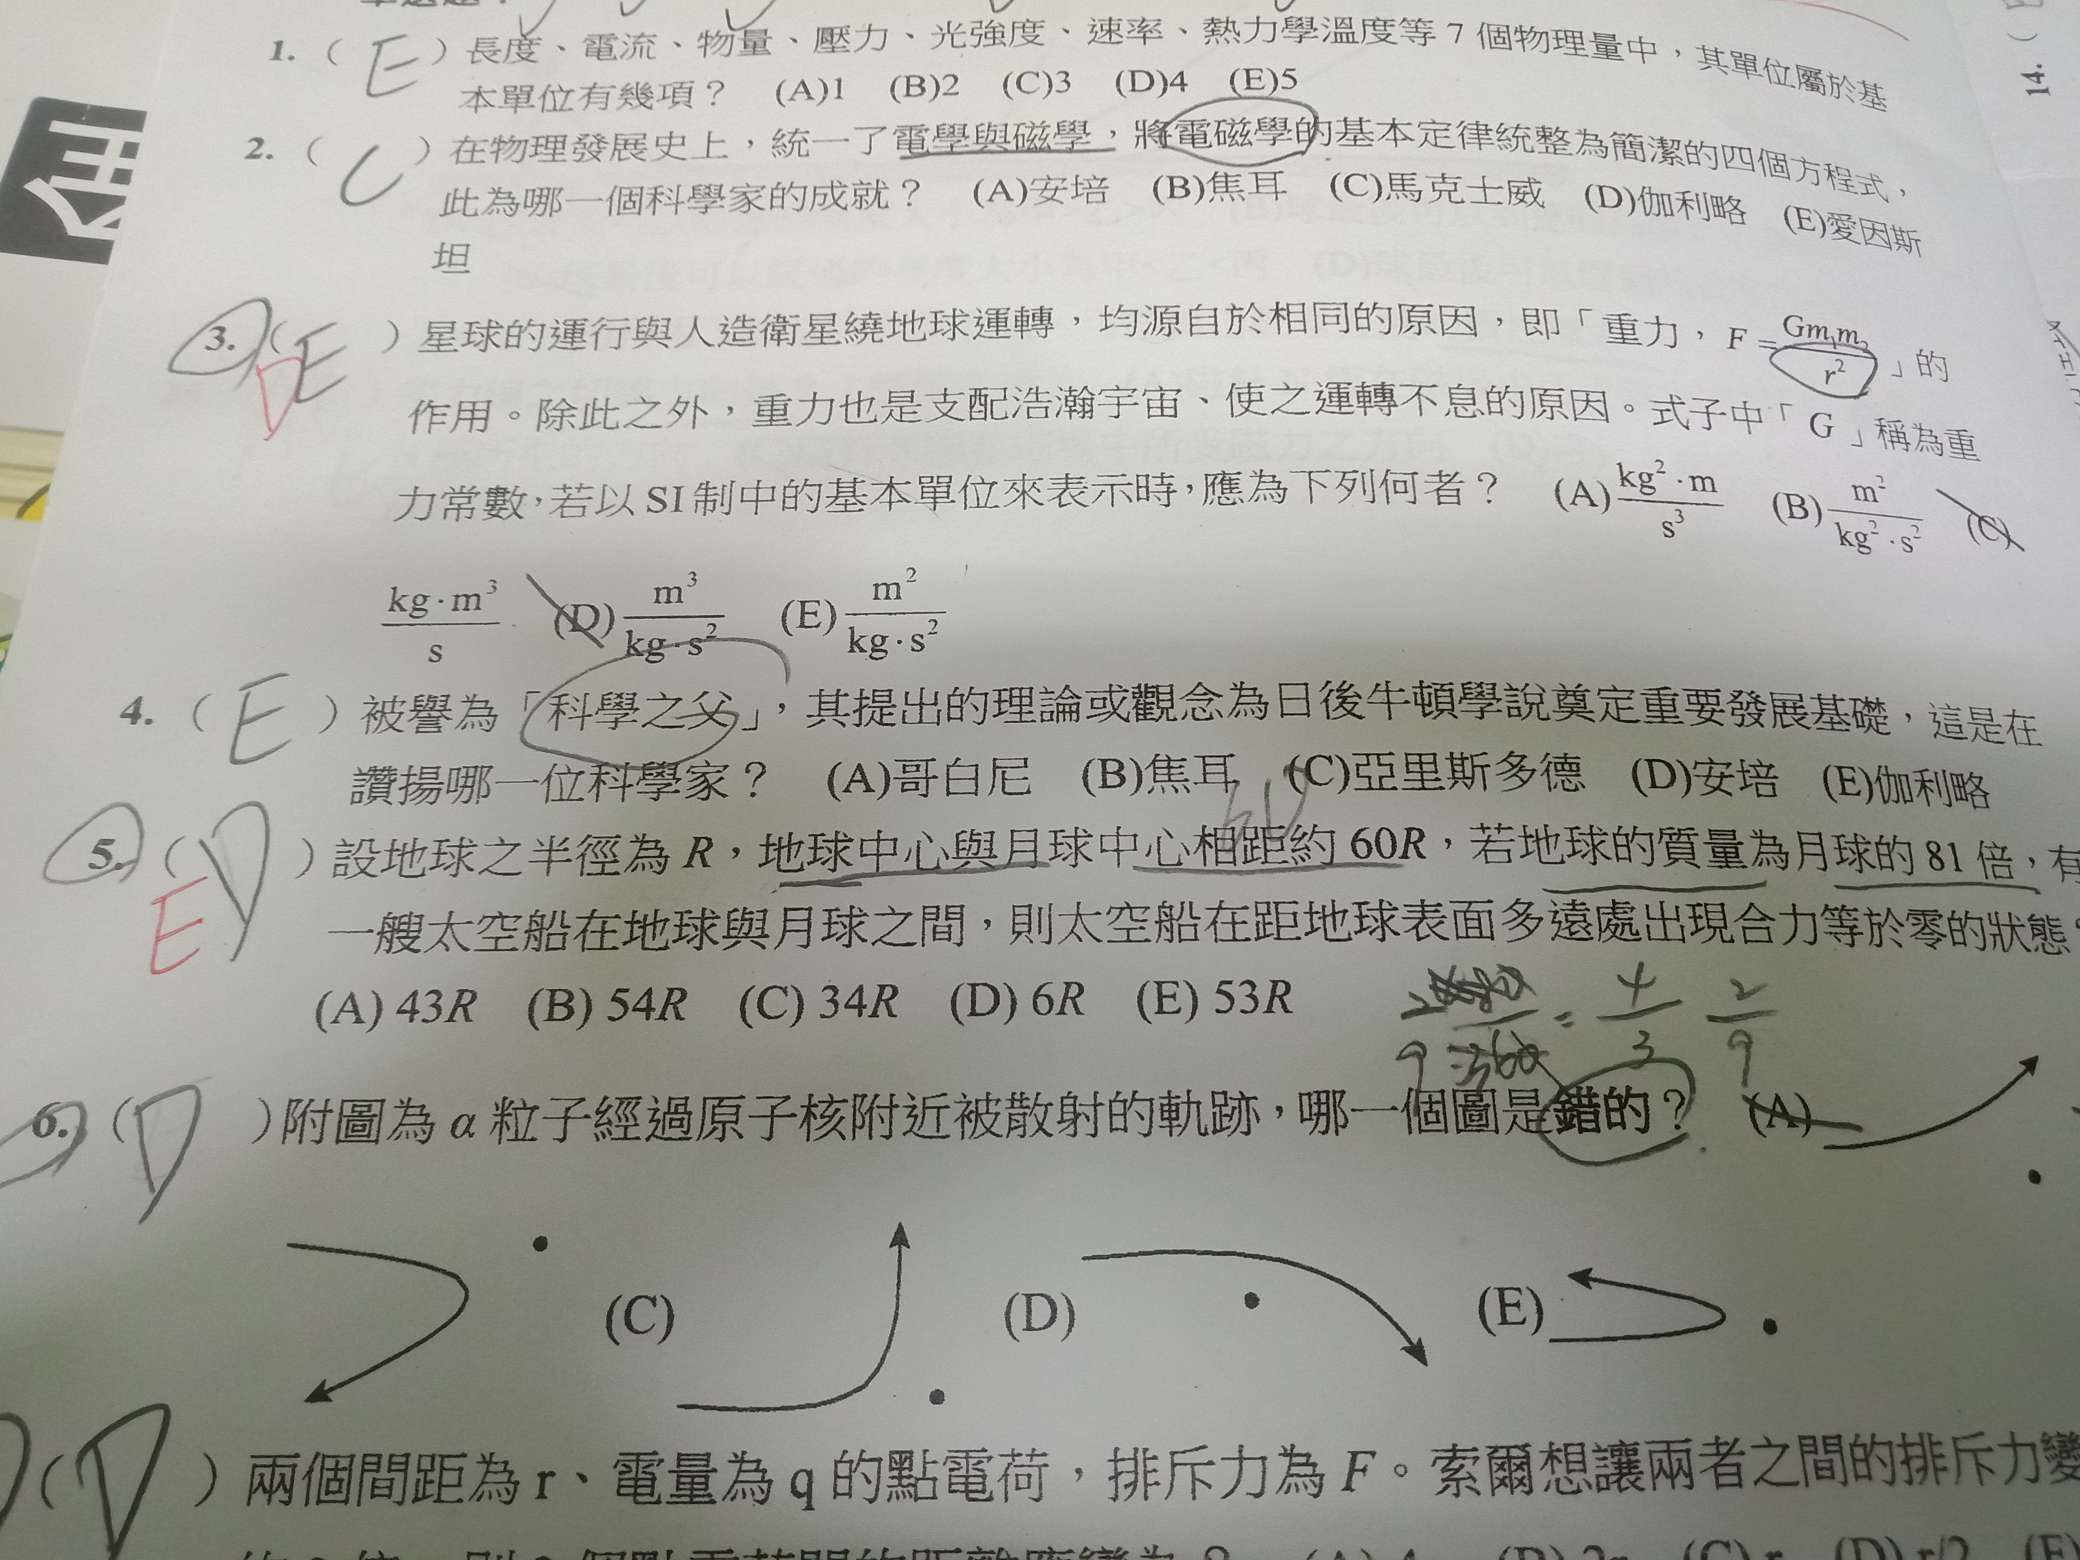 1.（ E ）長度、電流、物量、壓力、光強度、速率、熱力學溫度等 7 個物理量中，其單位屬於基
本單位有幾項？ (A)1 (B)2 (C)3 (D)4 (E)5
2.（ C ）在物理發展史上，統一了電學與磁學，將電磁學的基本定律統整為簡潔的四個方程式，
此為哪一個科學家的成就？ (A)安培 (B)焦耳 (C)馬克士威 (D)伽利略 (E)愛因斯
坦
3.（ E ）星球的運行與人造衛星繞地球運轉，均源自於相同的原因，即「重力，F = Gm₁m₂/r²」的
D
作用。除此之外，重力也是支配浩瀚宇宙、使之運轉不息的原因。式子中「G」稱為重
力常數，若以 SI 制中的基本單位來表示時，應為下列何者？ (A) kg²·m/s³ (B) m²/kg²·s² (C)
kg·m³/s (D) m³/kg·s² (E) m²/kg·s²
4.（ E ）被譽為「科學之父」，其提出的理論或觀念為日後牛頓學說奠定重要發展基礎，這是在
讚揚哪一位科學家？ (A)哥白尼 (B)焦耳 (C)亞里斯多德 (D)安培 (E)伽利略
5.（ D ）設地球之半徑為 R，地球中心與月球中心相距約 60R，若地球的質量為月球的 81 倍，有
E
一艘太空船在地球與月球之間，則太空船在距地球表面多遠處出現合力等於零的狀態
(A) 43R (B) 54R (C) 34R (D) 6R (E) 53R
= 4/3 2/9
6.（ D ）附圖為 α 粒子經過原子核附近被散射的軌跡，哪一個圖是錯的？ (A)
(C) (D) (E)
（ D ）兩個間距為 r、電量為 q 的點電荷，排斥力為 F。索爾想讓兩者之間的排斥力變
14.（